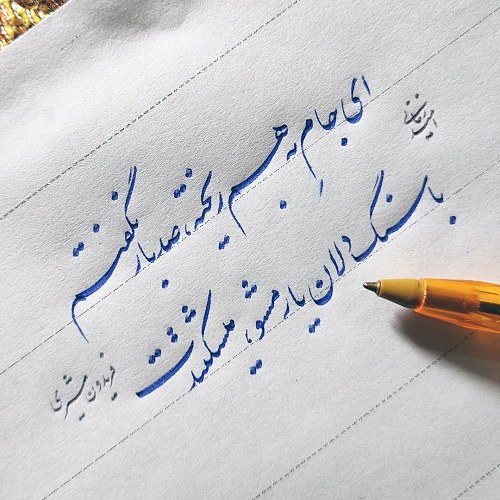 ای جامِ به هم ریخته، صد بار نگفتم
با سنگ‌دلان یار مشو، میشکنندت
فریدون مشیری